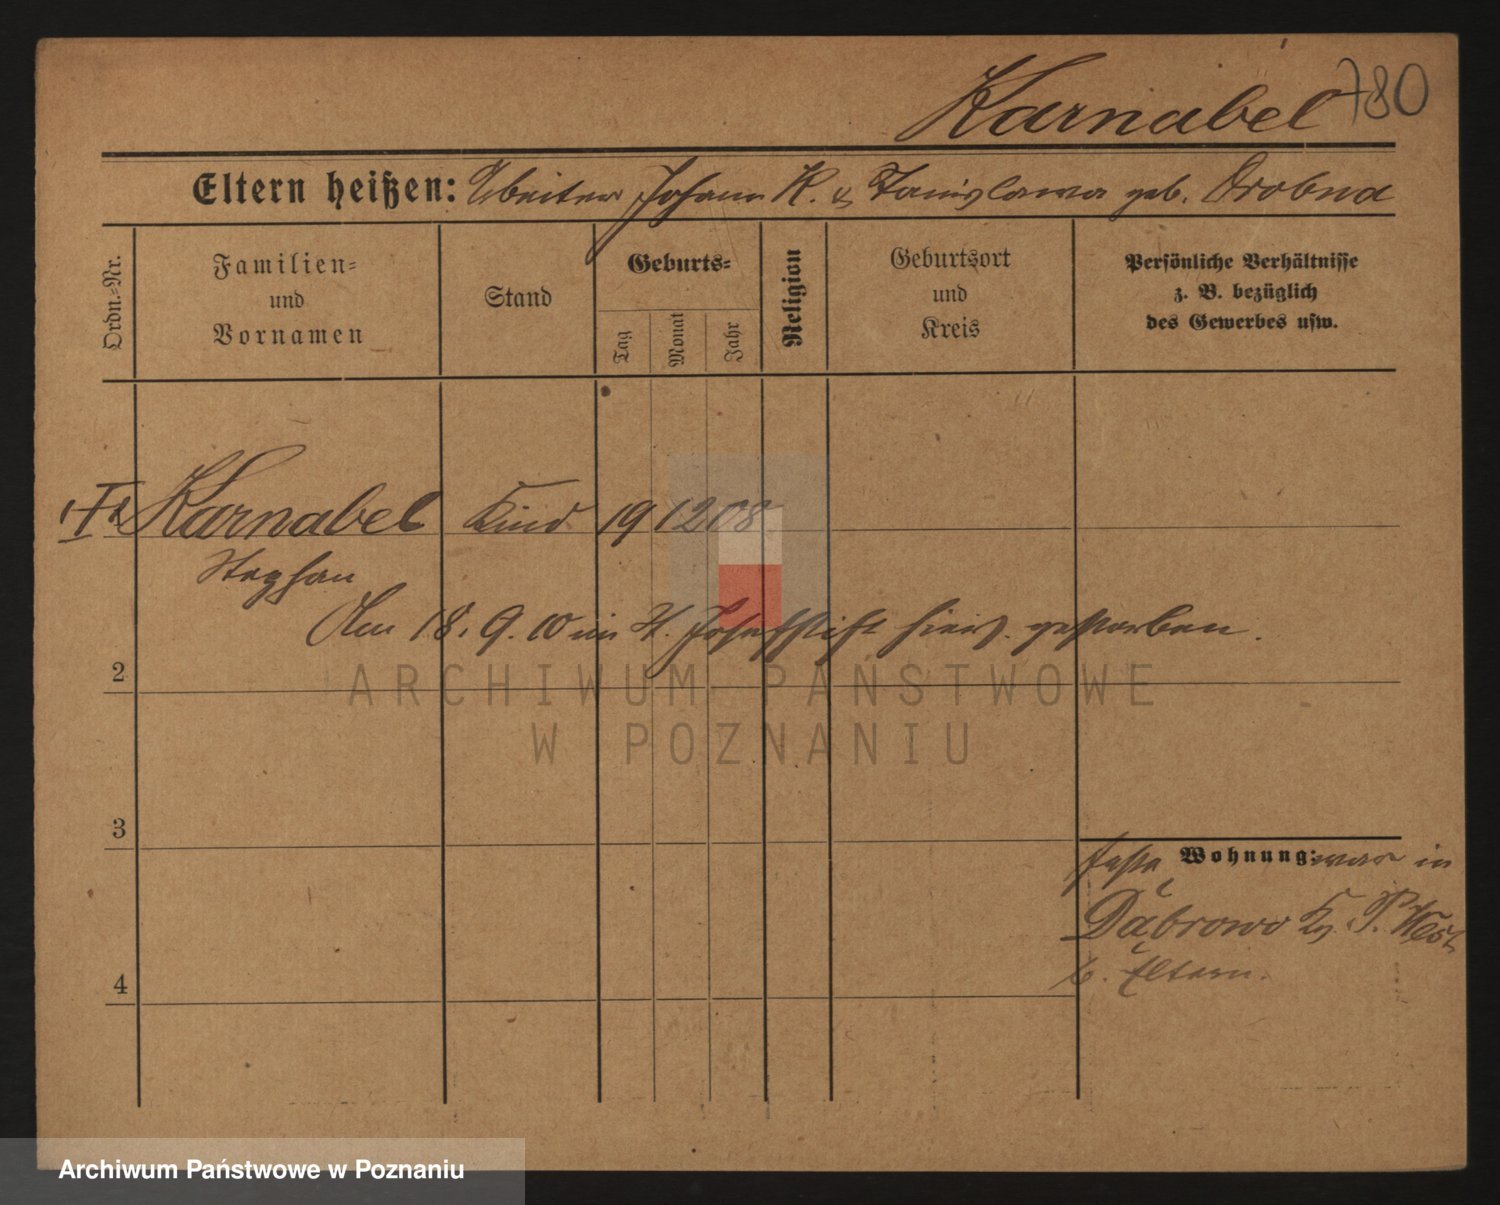 Karnabel 780
Eltern heißen: Arbeiter Johann K. & Stanislawa geb. Drobna
Ordn.=Nr.
Familien=
und
Vornamen
Stand
Geburts=
Tag
Monat
Jahr
Religion
Geburtsort
und
Kreis
Persönliche Verhältnisse
z. B. bezüglich
des Gewerbes usw.
Karnabel Kind 19 12 08
Stephan
Am 18. 9. 10 im St. Josefstift hiers. gestorben.
2
ARCHIWUM PAŃSTWOWE
W POZNANIU
3
feste Wohnung: war in
Dąbrowo Kr. P. West
b. Eltern.
4
Archiwum Państwowe w Poznaniu